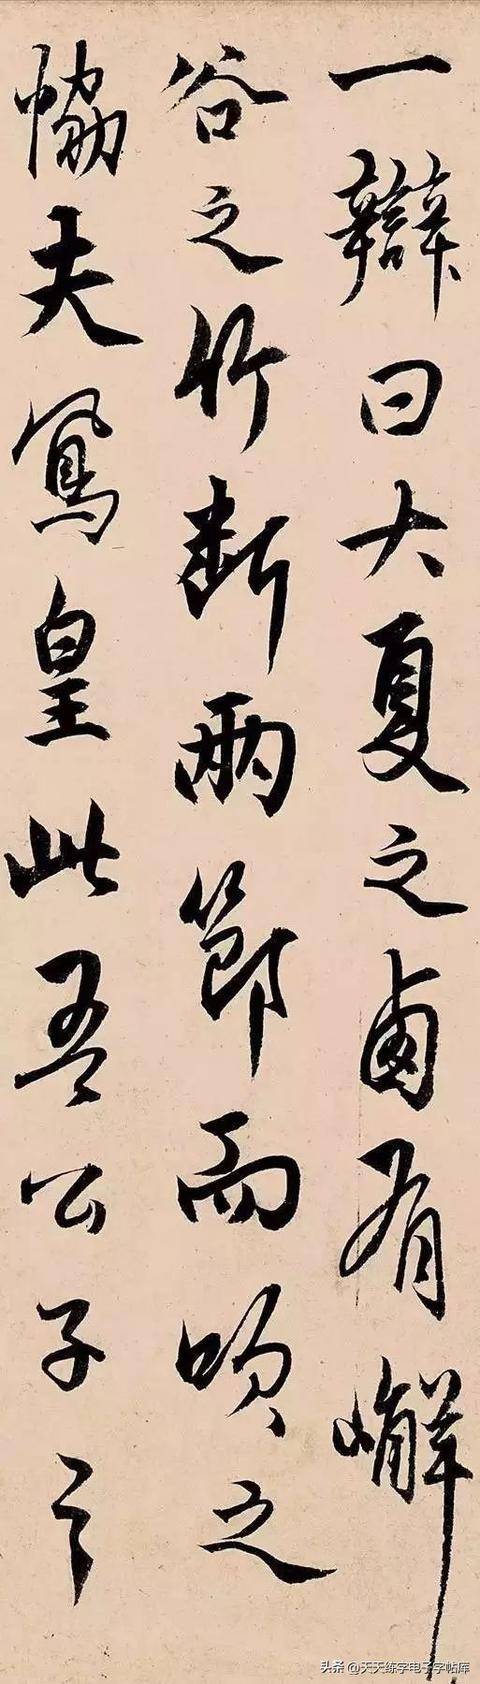 一辯曰大夏之鹵有嶰
谷之竹斷兩節而吹之
恊夫鳳皇此吾公子之
头条 @天天练字电子字帖库